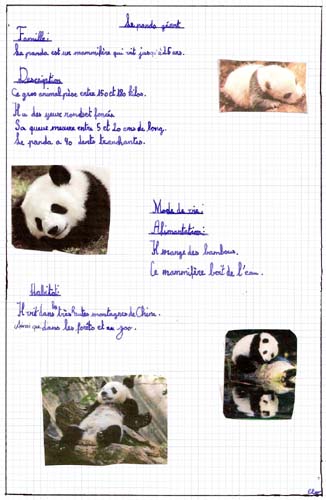 Le panda géant
Famille:
Le panda est un mammifère qui vit jusqu'à 25 ans.
Description
Ce gros animal pèse entre 150 et 180 kilos.
Il a des yeux ronds et foncés
Sa queue mesure entre 5 et 20 cms de long.
Le panda a 40 dents tranchantes.
Mode de vie:
Alimentation:
Il mange des bambous.
Ce mammifère boit de l'eau.
Habitat:
Il vit dans les très hautes montagnes de Chine.
Ainsi que dans les forêts et au zoo.